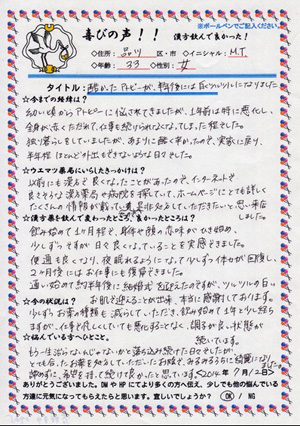 ※ボールペンでご記入ください。
喜びの声!! 漢方飲んで良かった!
◇住所: 品川 区・市 ◇イニシャル: M.T
◇年齢: 33 ◇性別: 女
タイトル: 酷かったアトピーが、半年後には白くツルツルになりました
☆今までの経緯は?
幼い頃からアトピーに悩まされてきましたが、1年前は特に悪化し、
全身が赤くただれて、仕事も続けられなくなってしまった程でした。
独り暮らしをしていましたが、あまりに酷く辛かったので、実家に戻り、
半年程ほとんど外出もできないような日々でした。
☆ウエマツ薬局にいらしたきっかけは?
以前にも漢方で良くなったことがあったので、インターネットで
良さそうな漢方薬局や病院を探していて、ホームページにとても詳しく
たくさんの情報が載って いただきたいと思い来店しました。
☆漢方薬を飲んで変わったところ、良かったところは?
飲み始めて1ヶ月程で、背中や顔の赤味がひき始め、
少しずつですが日々良くなっていることを実感できました。
便通も良くなり、夜眠れるようになって、少しずつ体力が回復し、
2ヶ月後にはお仕事にも復帰できました。
通い始めて約半年後に結婚式を迎えたのですが、ツルツルの白い
お肌で迎えることが出来、本当に感謝しております。
☆今の状況は?
少しずつお薬の種類も減らしていただき、飲み始めて1年と少し経ち
ますが、仕事で忙しくしていても悪化することなく、調子が良い状態が
続いています。
☆悩んでいる方へひとこと。
もう一生治らないんじゃないかと落ち込み続けた日々でしたが、
とても合ったお薬を処方していただいたお陰で、みるみるうちに綺麗になりました。
諦めずに、希望を持って続けて良かったと思っています。 <2014年7月12日>
ありがとうございました。DMやHPにてより多くの方へ伝え、少しでも他の悩んでいる
方達に元気になってもらえたらと思います。宜しいでしょうか? OK / NG